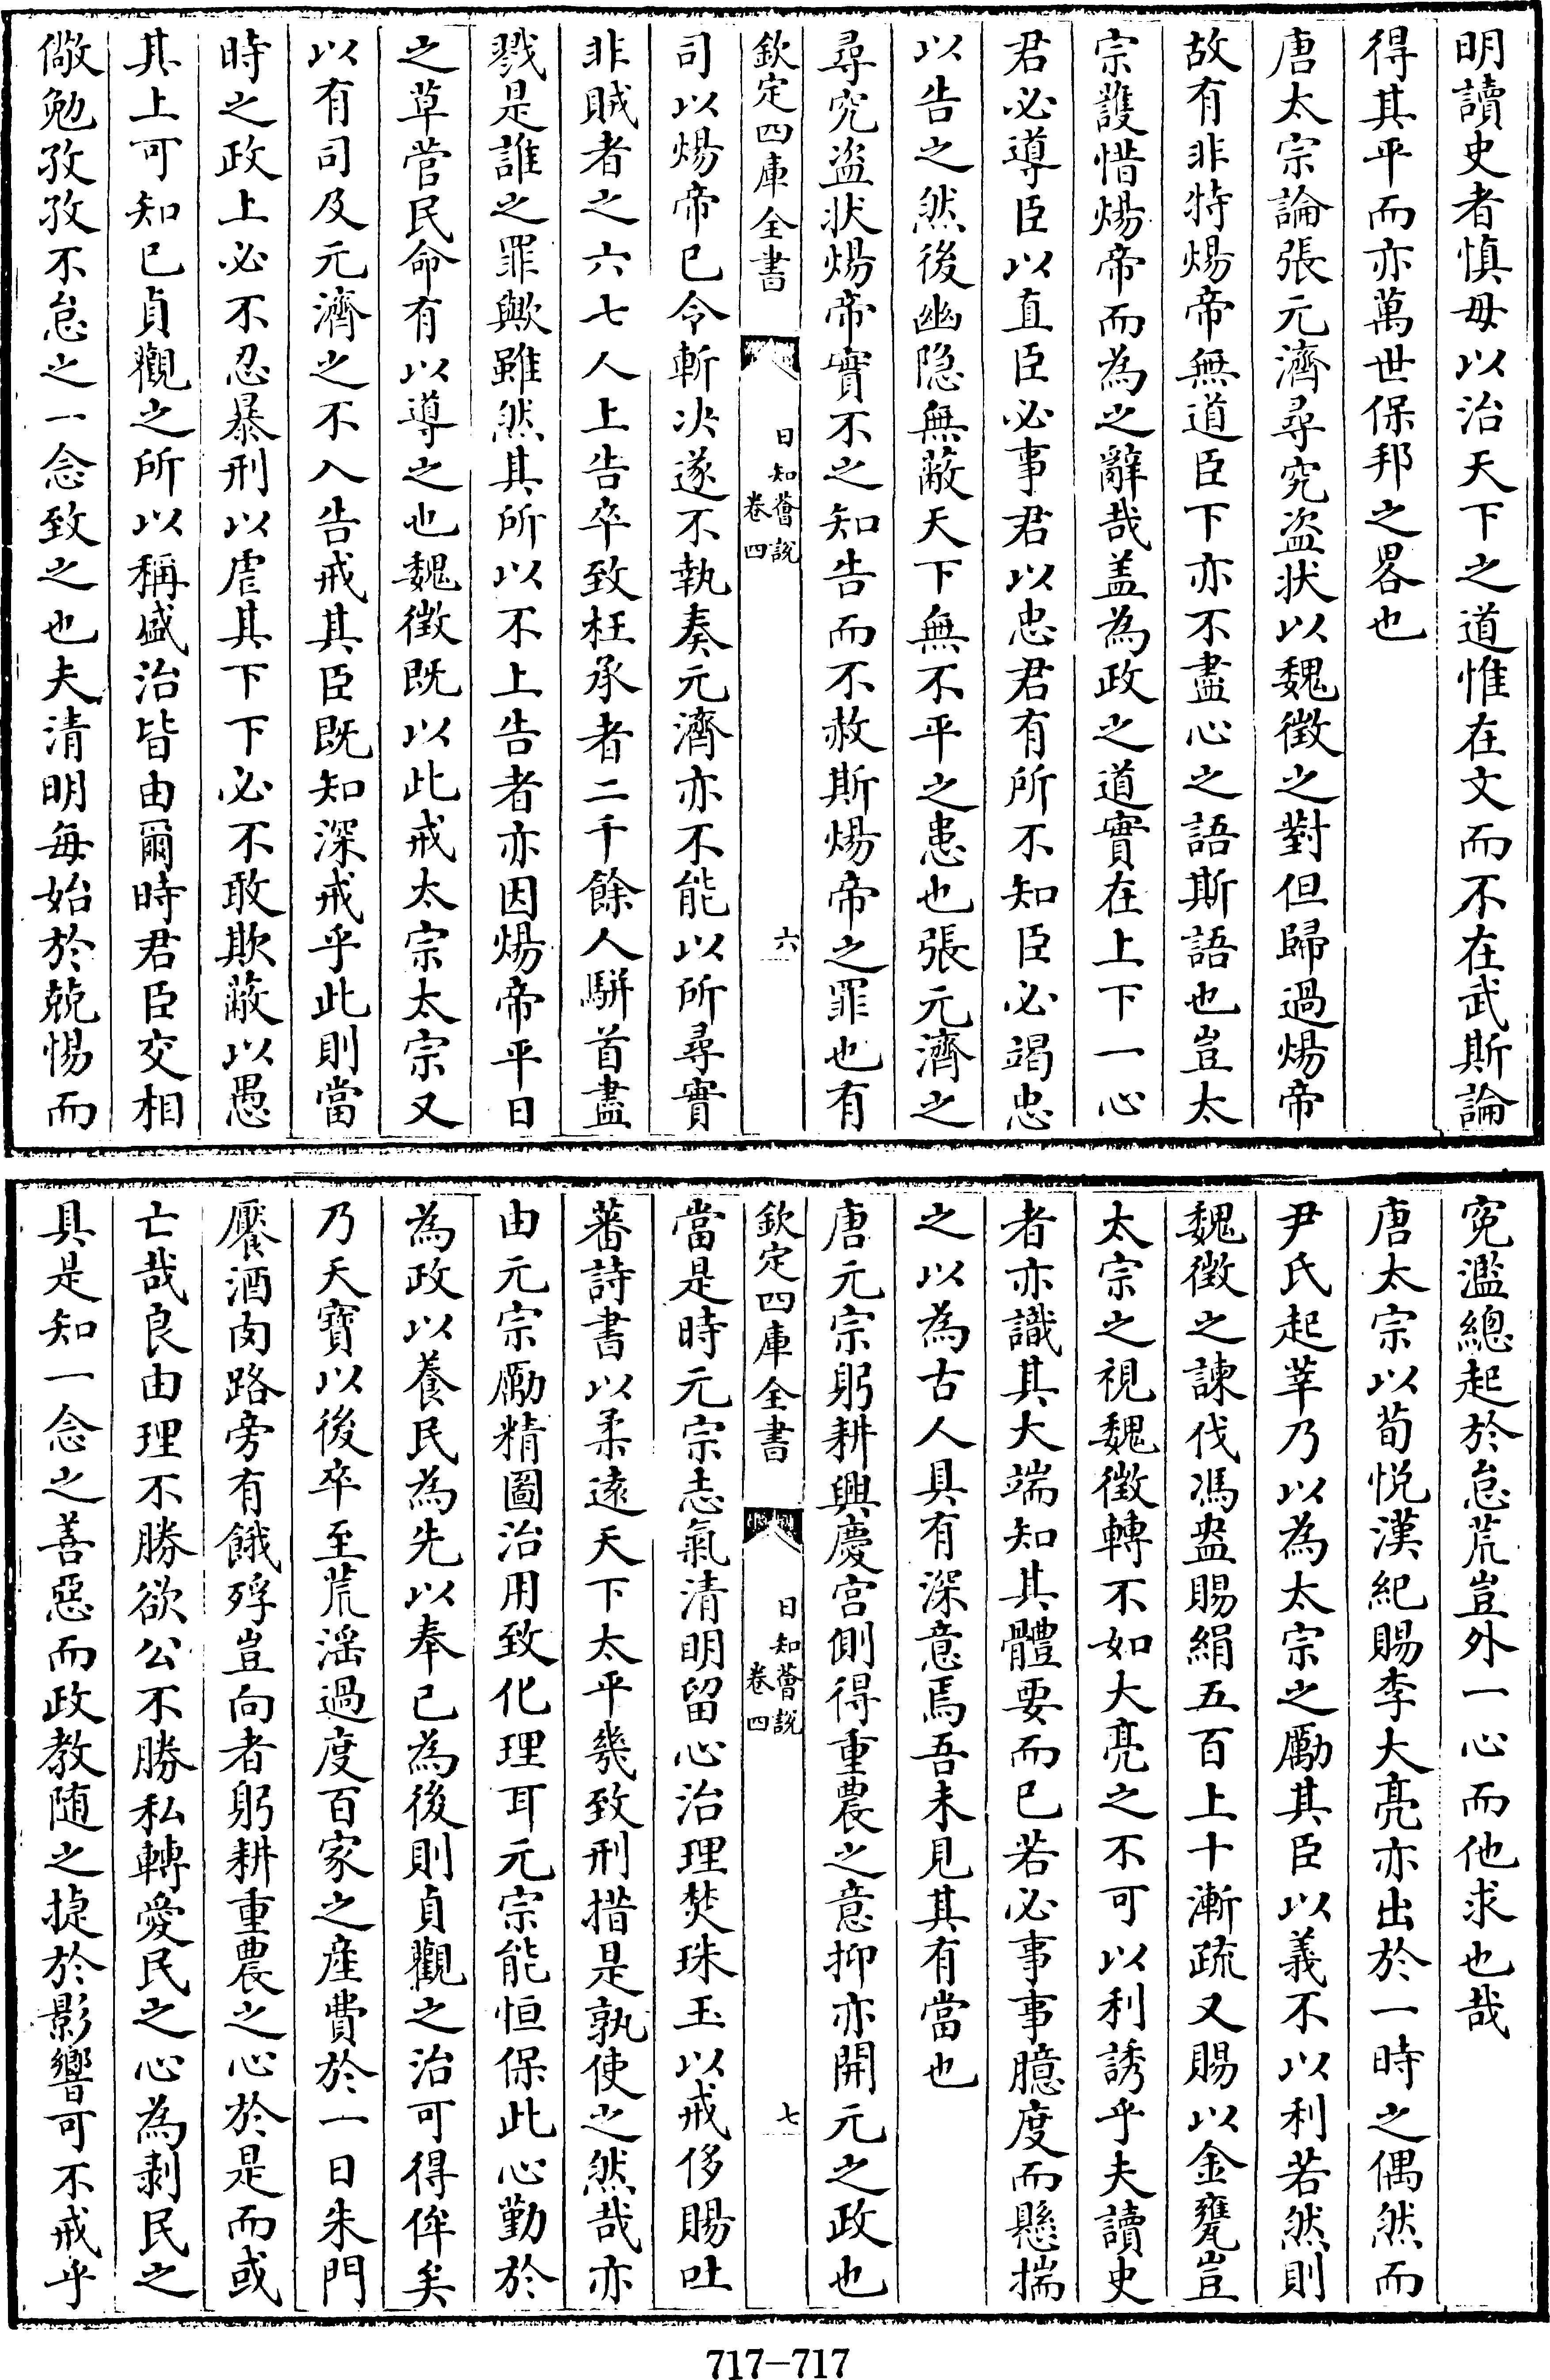 明讀史者慎毋以治天下之道惟在文而不在武斯論
得其平而亦萬世保邦之畧也
唐太宗論張元濟尋究盗状以魏徵之對但歸過煬帝
故有非特煬帝無道臣下亦不盡心之語斯語也豈太
宗護惜煬帝而為之辭哉盖為政之道實在上下一心
君必導臣以直臣必事君以忠君有所不知臣必竭忠
以告之然後幽隐無蔽天下無不平之患也張元濟之
尋究盗状煬帝實不之知告而不赦斯煬帝之罪也有
欽定四庫全書
日知薈說
卷四
六
司以煬帝已令斬决遂不執奏元濟亦不能以所尋實
非賊者之六七人上告卒致枉承者二千餘人駢首盡
戮是誰之罪歟雖然其所以不上告者亦因煬帝平日
之草菅民命有以導之也魏徵既以此戒太宗太宗又
以有司及元濟之不入告戒其臣既知深戒乎此則當
時之政上必不忍暴刑以虐其下下必不敢欺蔽以愚
其上可知已貞觀之所以稱盛治皆由爾時君臣交相
儆勉孜孜不怠之一念致之也夫清明每始於兢惕而
寃濫總起於怠荒豈外一心而他求也哉
唐太宗以荀悅漢紀賜李大亮亦出於一時之偶然而
尹氏起莘乃以為太宗之勵其臣以義不以利若然則
魏徵之諫伐馮盎賜絹五百上十漸疏又賜以金甕豈
太宗之視魏徵轉不如大亮之不可以利誘乎夫讀史
者亦識其大端知其體要而已若必事事臆度而懸揣
之以為古人具有深意焉吾未見其有當也
唐元宗躬耕興慶宫側得重農之意抑亦開元之政也
欽定四庫全書
日知薈說
卷四
七
當是時元宗志氣清明留心治理焚珠玉以戒侈賜吐
蕃詩書以柔遠天下太平幾致刑措是孰使之然哉亦
由元宗勵精圖治用致化理耳元宗能恒保此心勤於
為政以養民為先以奉己為後則貞觀之治可得侔矣
乃天寶以後卒至荒滛過度百家之産費於一日朱門
饜酒肉路旁有餓殍豈向者躬耕重農之心於是而或
亡哉良由理不勝欲公不勝私轉愛民之心為剥民之
具是知一念之善惡而政教随之捷於影響可不戒乎
717-717